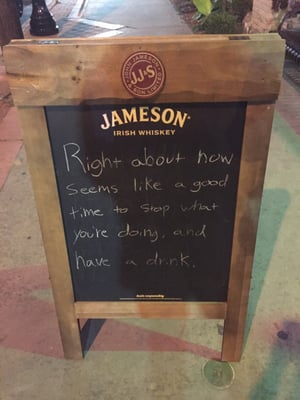 JOHN JAMESON
JJ&S
& SON LIMITED
JAMESON
IRISH WHISKEY
Right about now
seems like a good
time to stop what
you're doing, and
have a drink.